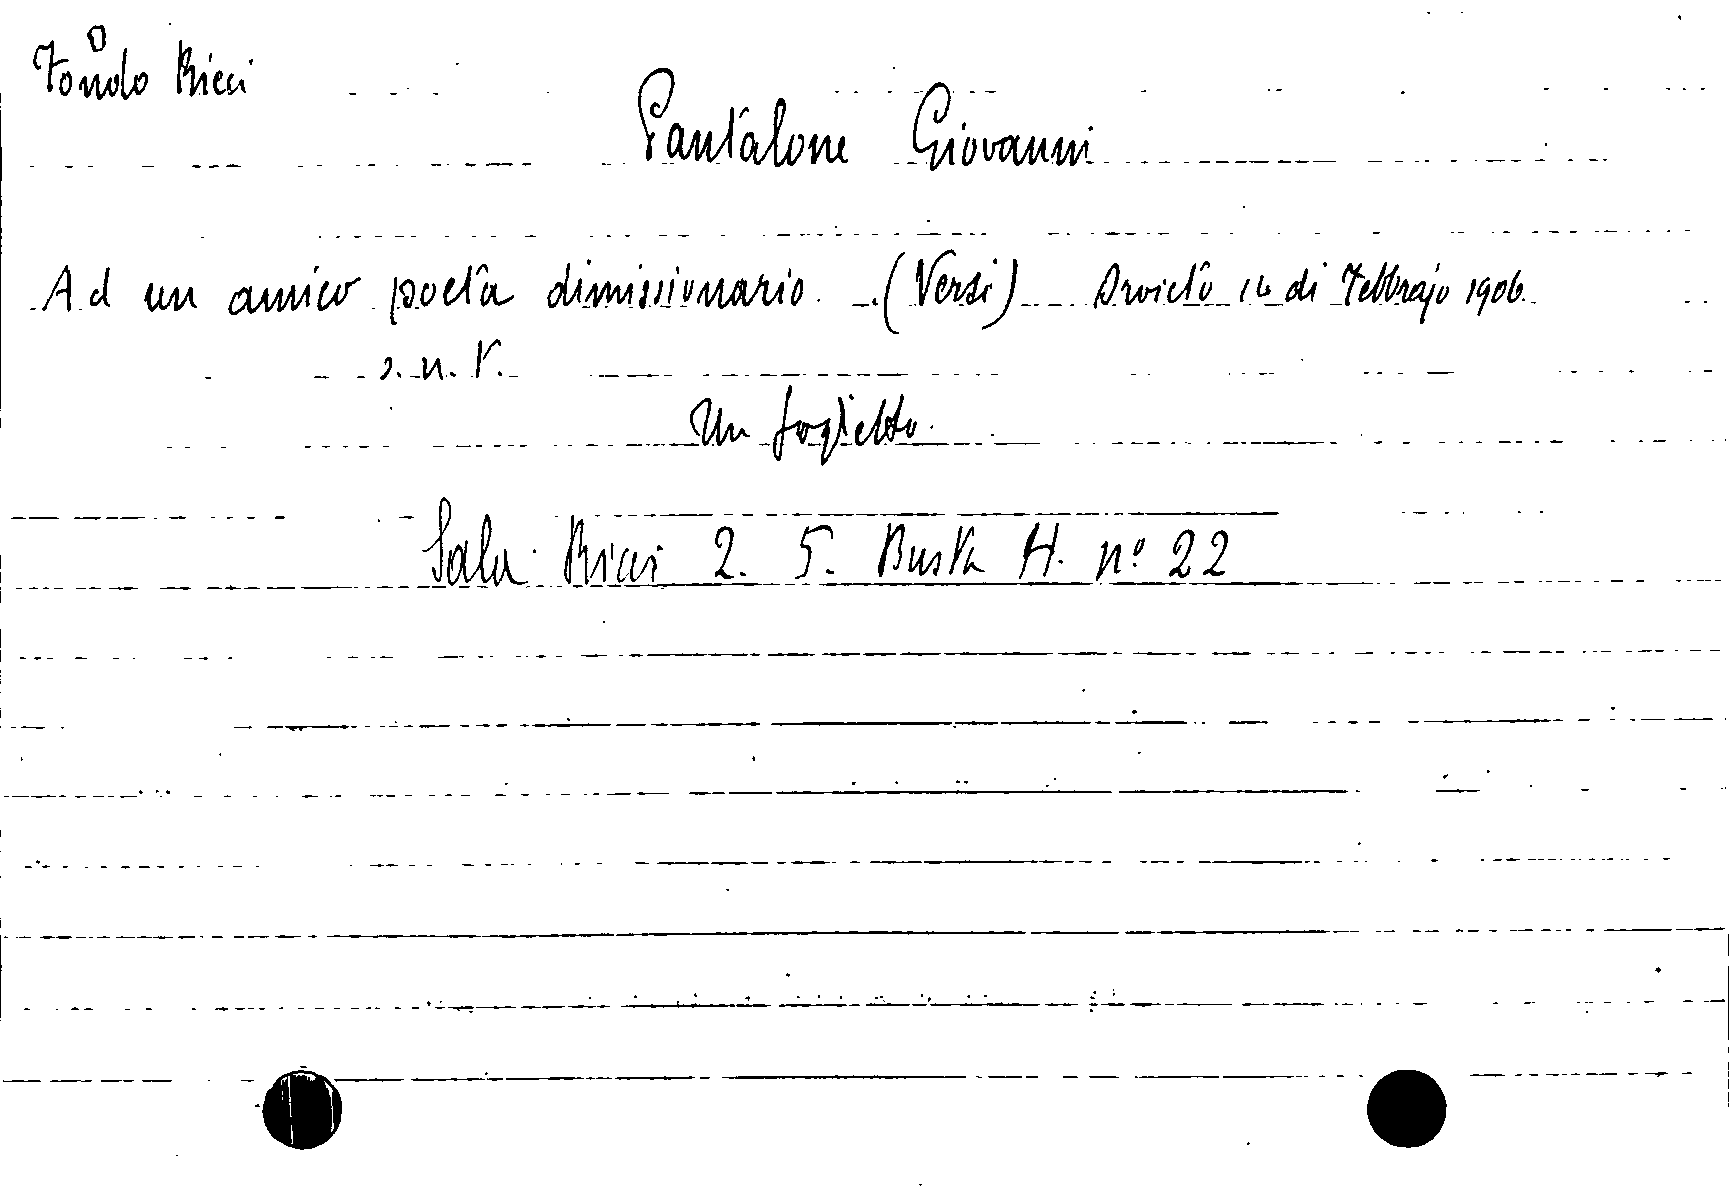 Fondo Ricci
Pantalone Giovanni
Ad un amico poeta dimissionario. (Versi) Orvieto 14 di Febbrajo 1906.
s. n. t.
Un foglietto.
Sala Ricci 2. 5. Busta H. nº 22